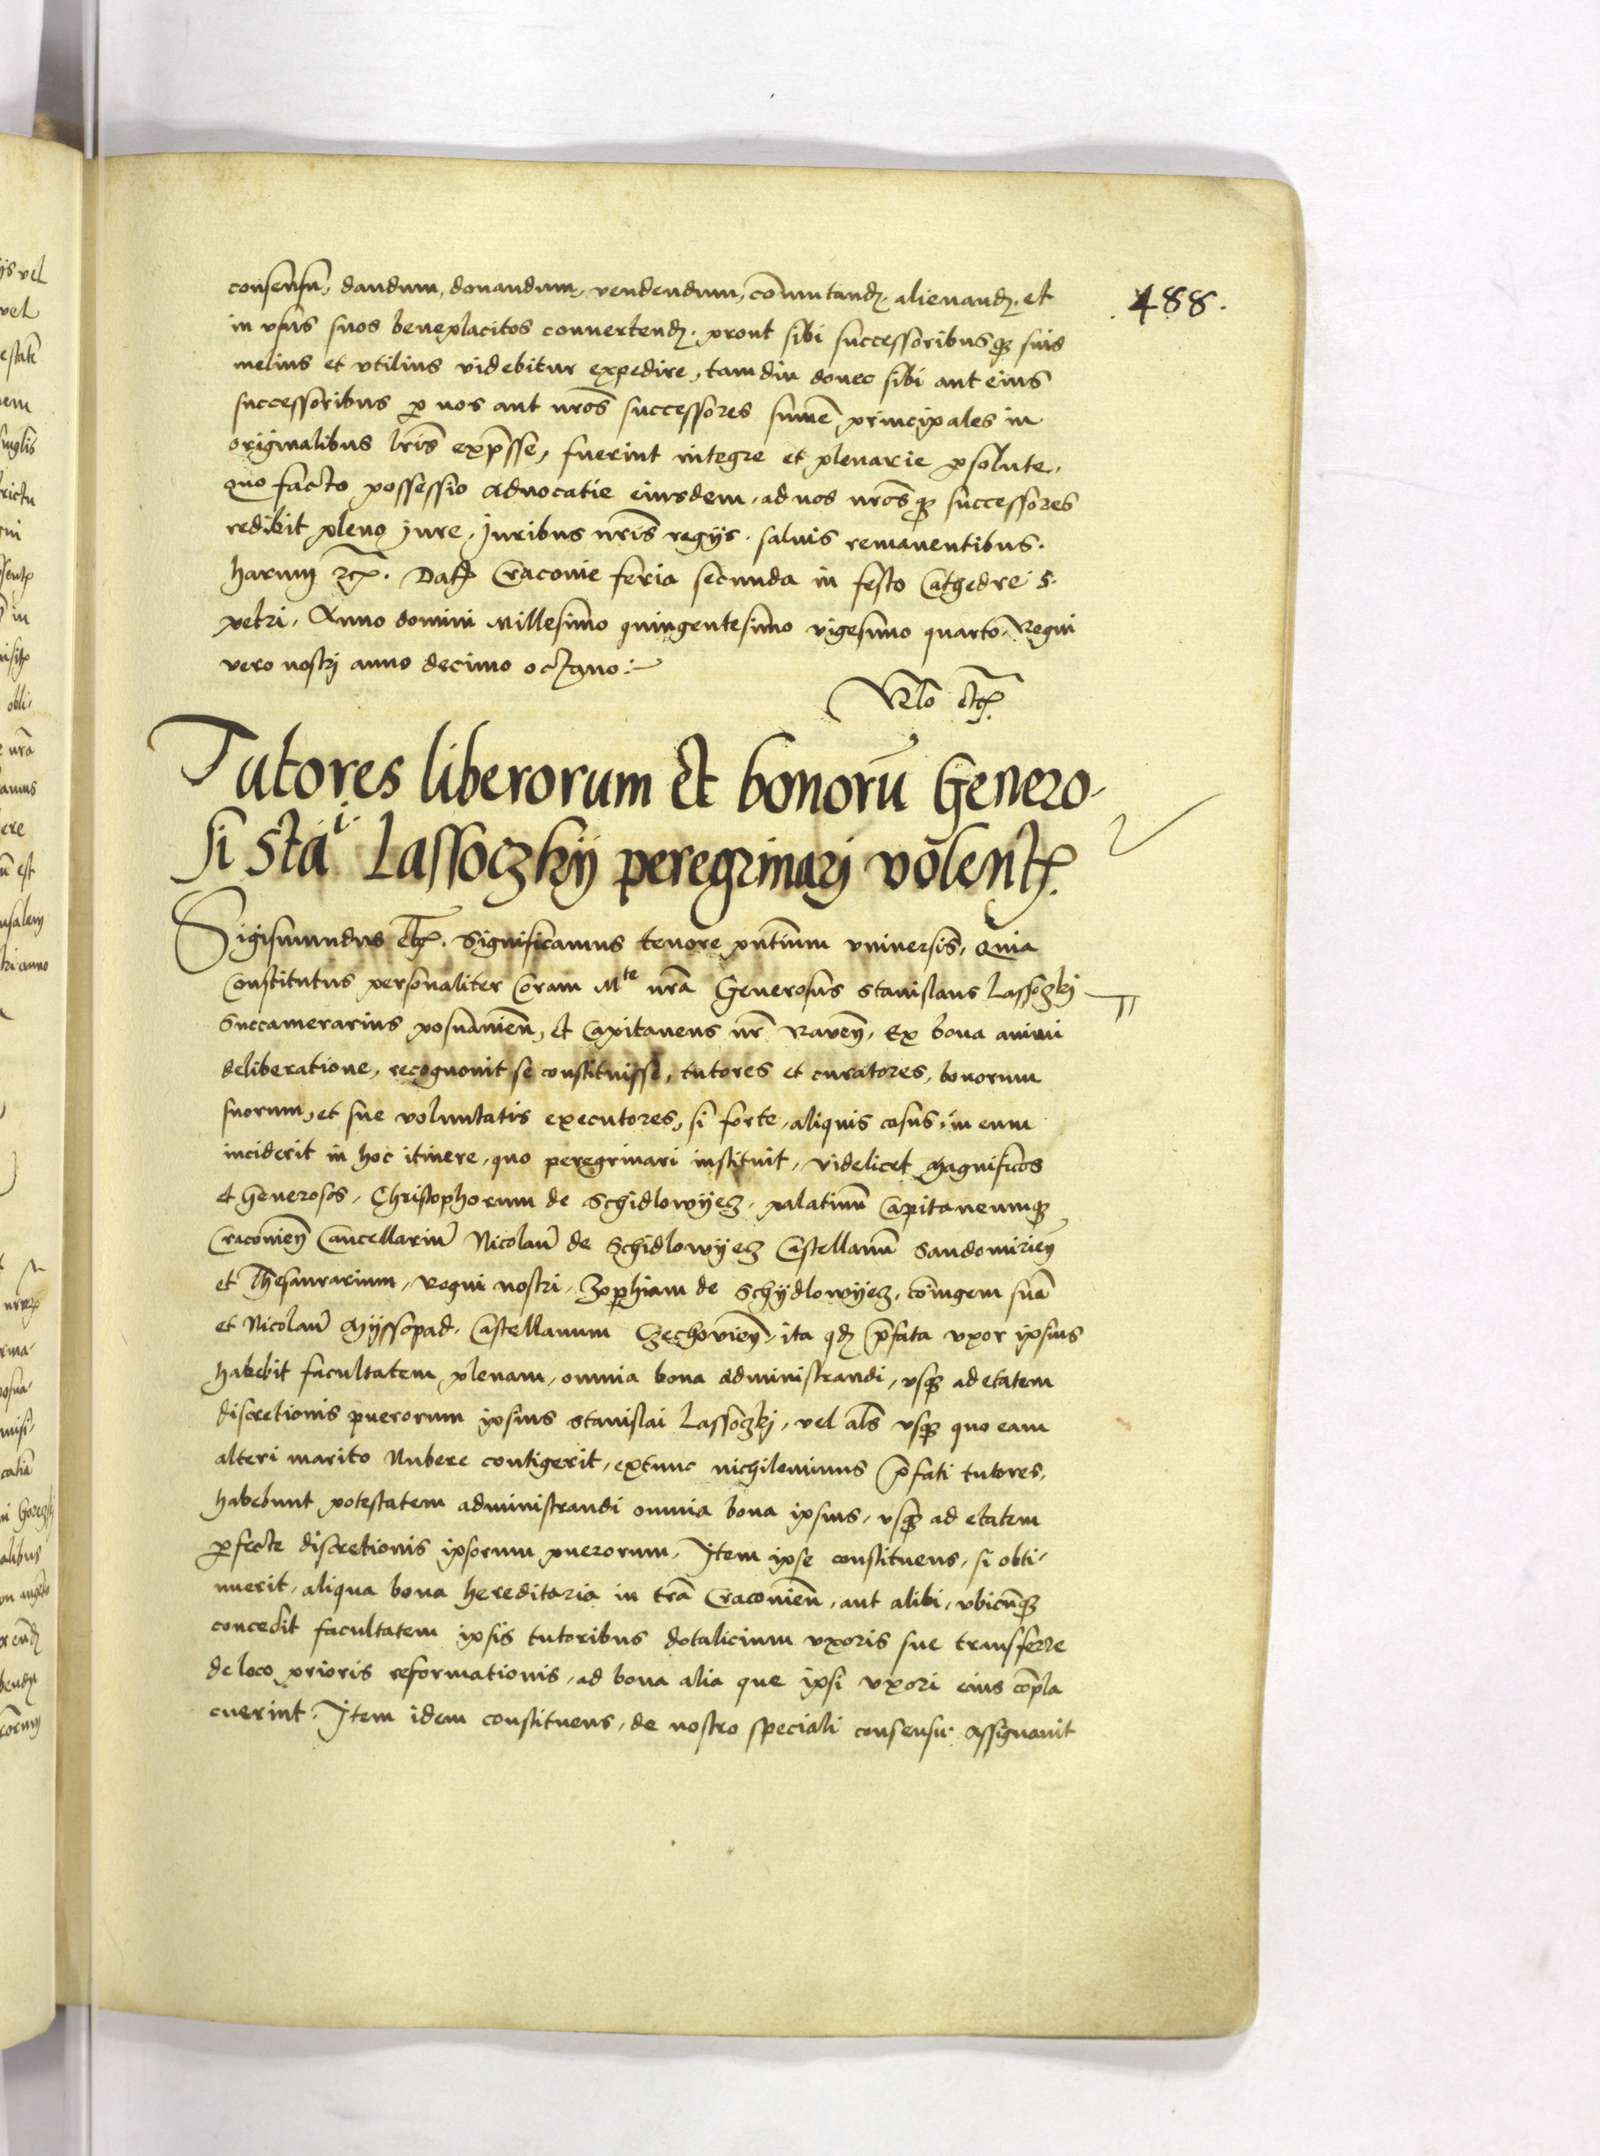 488.
consensu, dandum, donandum, vendendum, cōmutandȝ alienandȝ et
in vsus suos beneplacitos convertendȝ prout sibi successoribusqȝ suis
melius et vtilius videbitur expedire, tam diu donec sibi aut eius
successoribus ꝑ nos aut nr̄os successores sum̄e principales in
originalibus lr̄is exp̄sse, fuerint integre et plenarie ꝑsolute,
quo facto possessio advocatie eiusdem, ad nos nr̄osqȝ successores
redibit pleno Jure, Juribus nr̄is regijs salvis remanentibus.
harum etc. Datȝ Cracovie feria secunda in festo Cathedre S.
petri, Anno domini Millesimo quingentesimo vigesimo quarto, Regni
vero nostri anno decimo octavo:
Rlo etc.
Tutores liberorum et bonorū Genero-
si Stai Lassoczkij peregrinarj volentȝ.
Sigismundus etc. Significamus tenore pn̄tium vniversis, Quia
Constitutus personaliter Coram Mte nr̄a Generosus Stanislaus Lassoczkj
Succamerarius posnanien̄, et Capitaneus nr̄ Raven̄, Ex bona animi
deliberatione, recognovit se constituisse, tutores et curatores, bonorum
suorum, et sue voluntatis executores, si forte, aliquis casus, in eum
inciderit in hoc itinere, quo peregrinari instituit, videlicet Magnificos
et Generosos, Christophorum de Schidlowijecz, palatinū Capitaneumqȝ
Cracovien̄ Cancellariū Nicolaū de Schidlowijecz Castellanū Sandomirien̄
et Thesaurarium, Regni nostri, Zophiam de Schijdlowijecz, cōiugem suā
et Nicolaū Mijssopad, Castellanum Czechovien̄, ita qȝ p̄fata vxor ipsius
habebit facultatem plenam, omnia bona administrandi, vsqȝ ad etatem
discretionis puerorum ipsius Stanislai Lassoczkj, vel al̄s vsqȝ quo eam
alteri marito Nubere contigerit, extunc nichilominus p̄fati tutores,
habebunt potestatem administrandi omnia bona ipsius, vsqȝ ad etatem
ꝑfecte discretionis ipsorum puerorum, Item ipse constituens, si obti-
nuerit, aliqua bona hereditaria in trā Cracovien̄, aut alibi, vbicūqȝ
concedit facultatem ipsis tutoribus dotalicium vxoris sue transferre
de loco prioris reformationis, ad bona alia que ipsi vxori eius cōpla
cuerint. Item idem constituens, de nostro speciali consensu assignavit